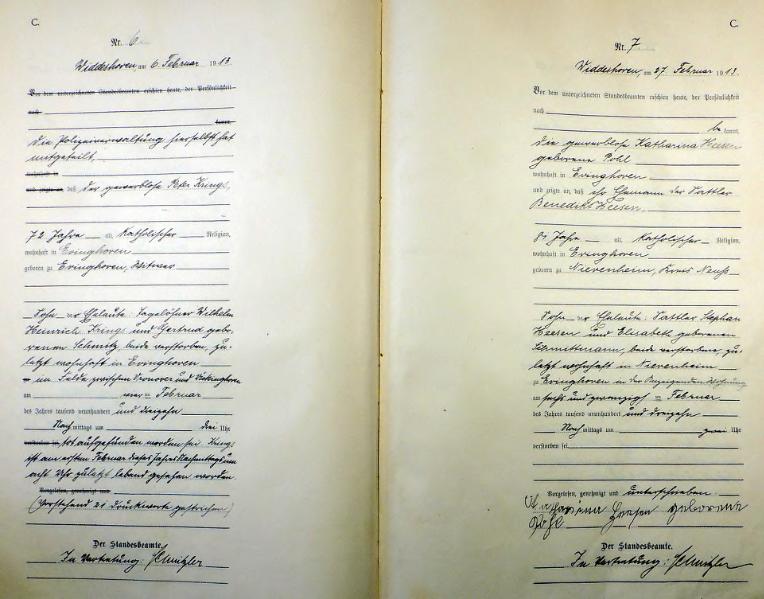 C.
Nr. 6
Widdeshoven, am 6 Februar 1913.
Vor dem unterzeichneten Standesbeamten erschien heute, der Persönlichkeit
nach
kannt,
die Polizeiverwaltung hierselbst hat
mitgeteilt,
wohnhaft in
und zeigte an, daß der gewerblose Peter Krings,
72 Jahre alt, katholischer Religion,
wohnhaft in Evinghoven
geboren zu Evinghoven, Witwer
Sohn der Eheleute: Tagelöhner Wilhelm
Heinrich Krings und Gertrud gebo-
renen Schmitz, beide verstorben, zu-
letzt wohnhaft in Evinghoven
im Felde zwischen und
am Februar
des Jahres tausend neunhundert und dreizehn
Nachmittags um drei Uhr
tot aufgefunden worden sei Krings
ist am ersten Februar dieses Jahres Nachmittags um
acht Uhr zuletzt lebend gesehen worden
Vorgelesen, genehmigt und
(Vorstehend 21 Druckworte gestrichen)
Der Standesbeamte.
In Vertretung: Schnitzler
C.
Nr. 7
Widdeshoven, am 27 Februar 1913.
Vor dem unterzeichneten Standesbeamten erschien heute, der Persönlichkeit
nach
be kannt,
die gewerblose Katharina Heesen
geborene Pohl
wohnhaft in Evinghoven
und zeigte an, daß ihr Ehemann der Sattler
Benedikt Heesen
Jahre alt, katholischer Religion,
wohnhaft in Evinghoven
geboren zu Nievenheim, Kreis Neuß
Sohn der Eheleute: Sattler Stephan
Heesen und Elisabeth geborenen
beide verstorben, zu-
letzt wohnhaft in Nievenheim
zu Evinghoven in der Anzeigenden Wohnung
am sechs und zwanzigsten Februar
des Jahres tausend neunhundert und dreizehn
Nachmittags um zwei Uhr
verstorben sei
Vorgelesen, genehmigt und unterschrieben
Katharina Heesen geborene
Pohl
Der Standesbeamte.
In Vertretung: Schnitzler